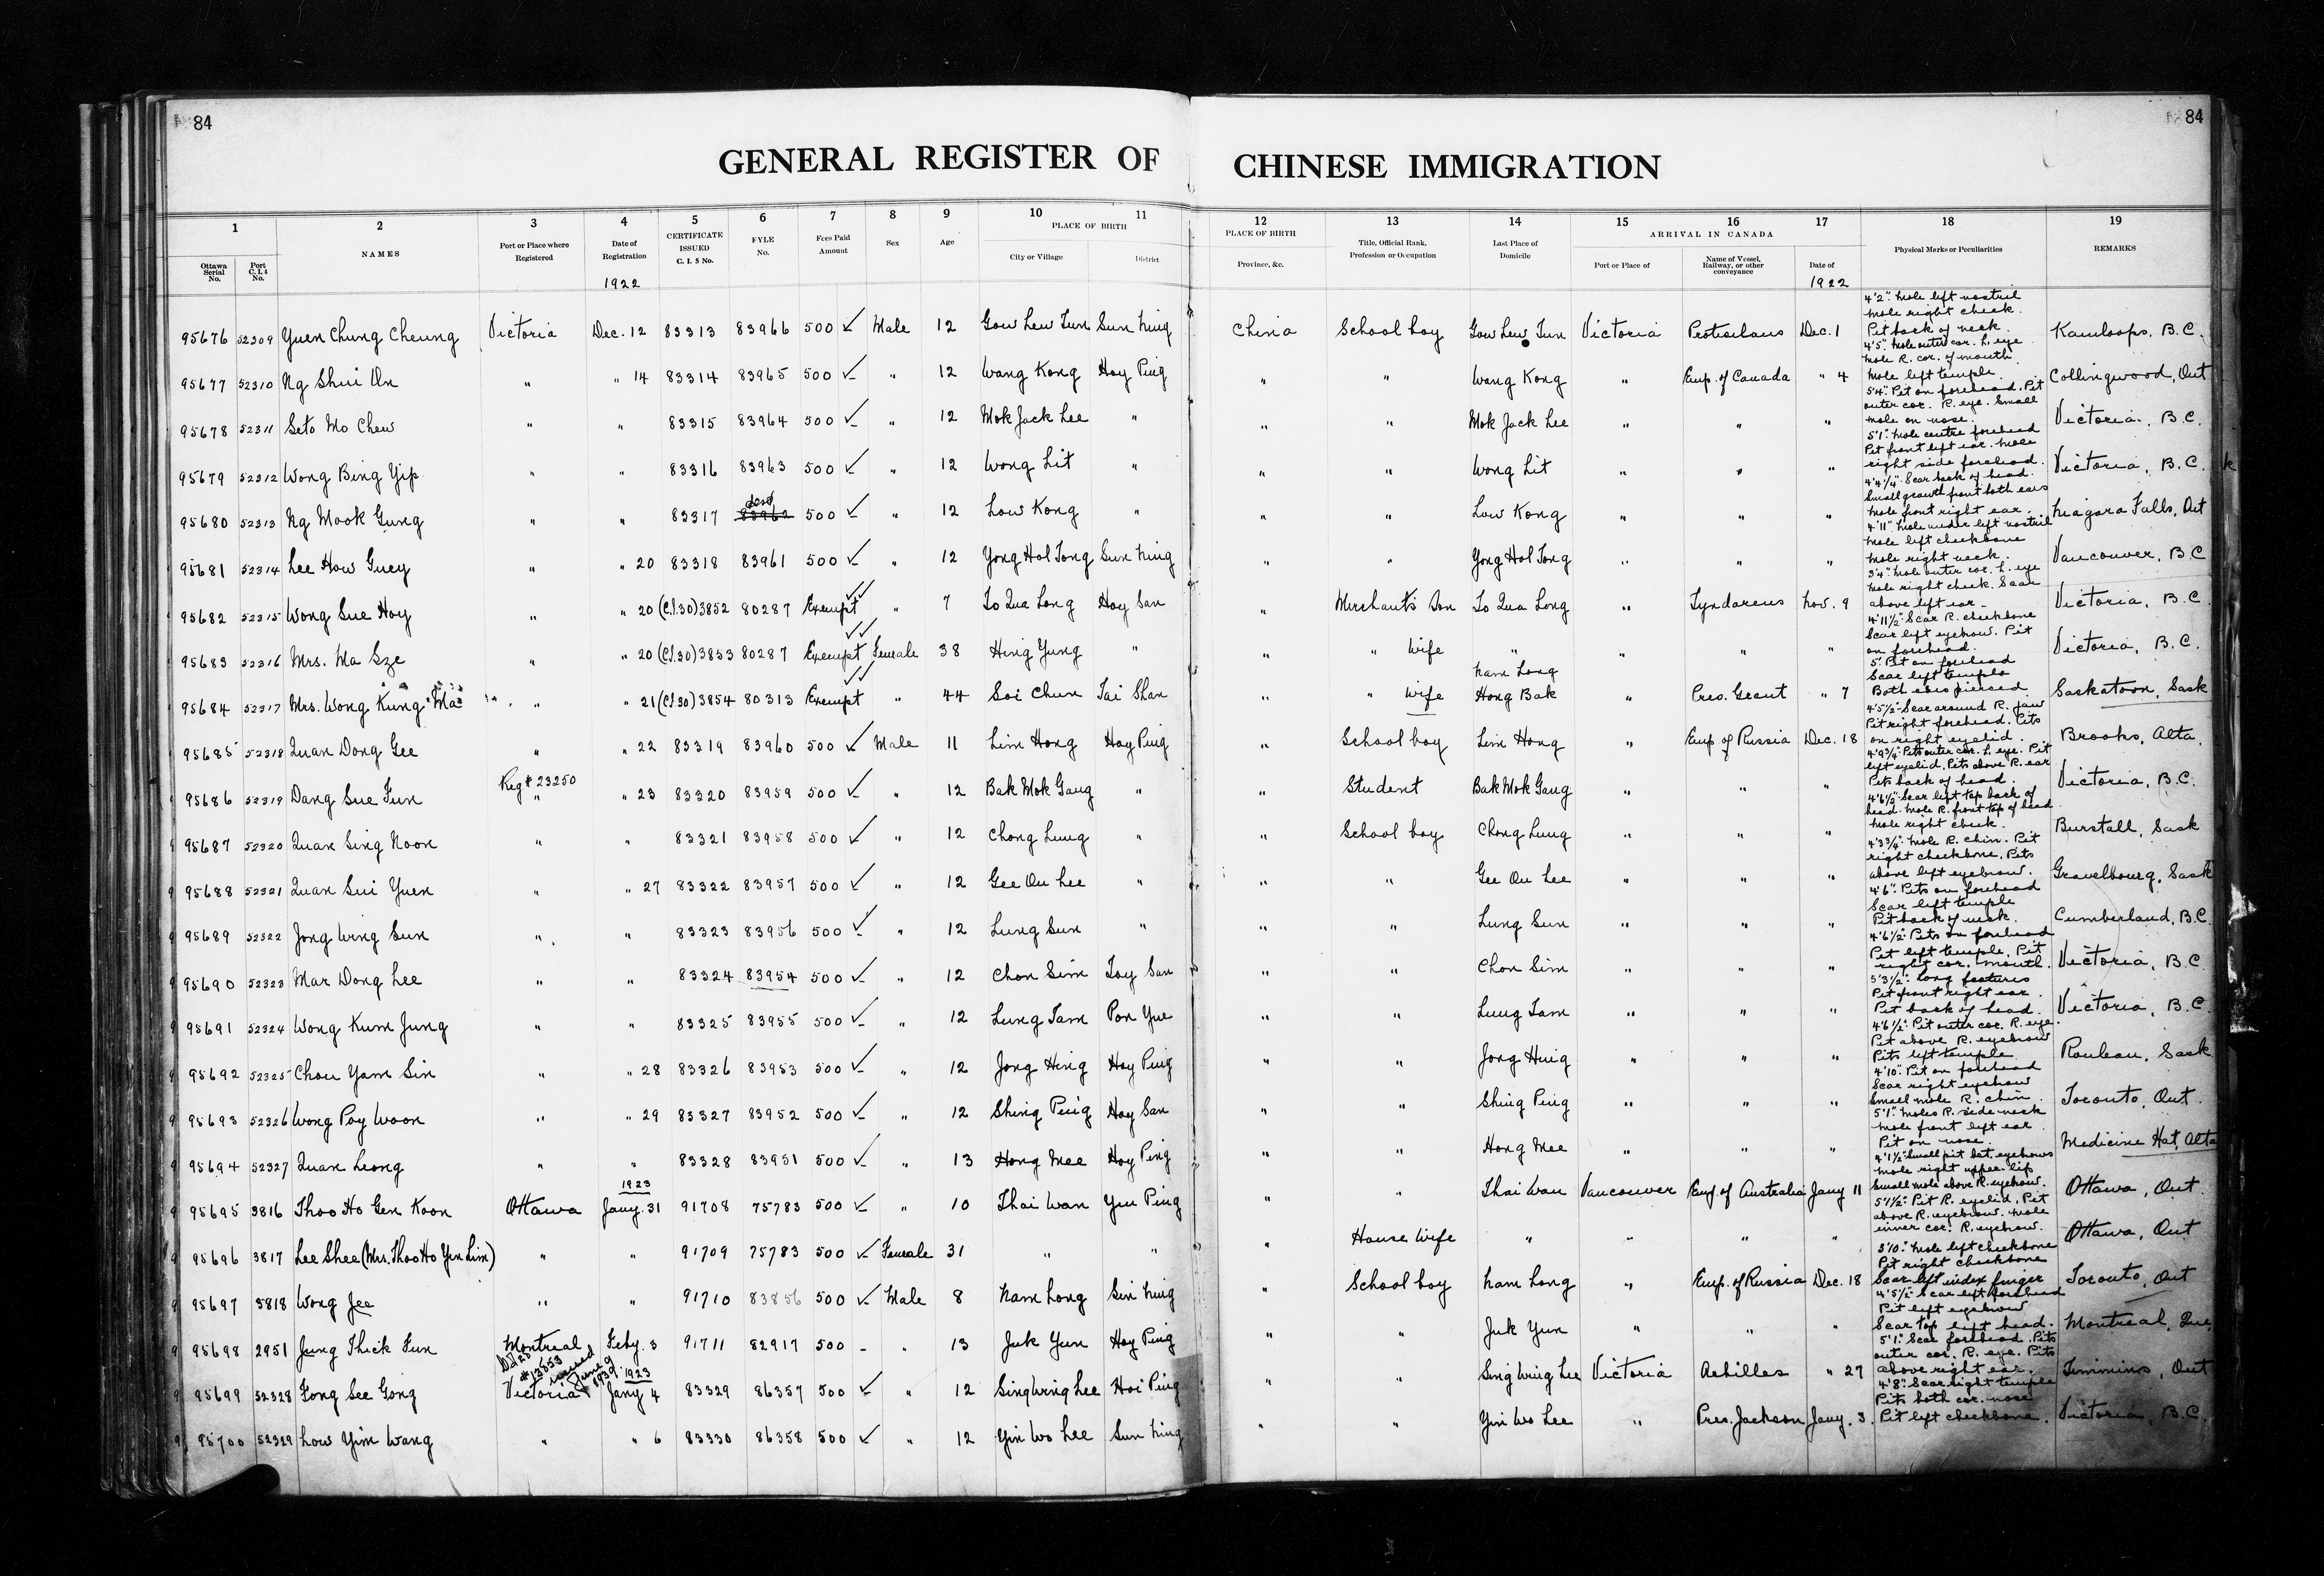 84
84
GENERAL REGISTER OF CHINESE IMMIGRATION
1 2 3 4 5 6 7 8 9 10 11 12 13 14 15 16 17 18 19
Ottawa Serial No. Port C.I.4 No. NAMES Port or Place where Registered Date of Registration CERTIFICATE ISSUED C. I. 5 No. FYLE No. Fees Paid Amount Sex Age PLACE OF BIRTH City or Village District PLACE OF BIRTH Province, &c. Title, Official Rank, Profession or Occupation Last Place of Domicile ARRIVAL IN CANADA Port or Place of Name of Vessel, Railway, or other conveyance Date of Physical Marks or Peculiarities REMARKS
1922 1922
95676 52309 Yuen Chung Cheung Victoria Dec. 12 83313 83966 500 ✓ Male 12 Gow Lew Tun Sun Ning China School boy Gow Lew Tun Victoria Protesilaus Dec. 1 4'2". Mole left nostril Mole right cheek. Pit back of neck. Kamloops, B.C.
95677 52310 Ng Shui On " " 14 83314 83965 500 ✓ " 12 Wang Kong Hoy Ping " " Wang Kong " Emp. of Canada " 4 4'5". Mole outer cor. L. eye Mole R. cor. of mouth. Mole left temple. Collingwood, Ont
95678 52311 Seto Mo Chew " " 83315 83964 500 ✓ " 12 Mok Jack Lee " " " Mok Jack Lee " " " 5'4". Pit on forehead. Pit outer cor. R. eye. Small mole on nose. Victoria, B.C.
95679 52312 Wong Bing Yip " " 83316 83963 500 ✓ " 12 Wong Lit " " " Wong Lit " " " 5'1". Mole centre forehead Pit front left ear. Mole right side forehead. Victoria, B.C.
95680 52313 Ng Mook Gung " " 83317 83962 500 ✓ " 12 Low Kong " " " Low Kong " " " 4'4¼". Scar back of head. Small growth front both ears Mole front right ear. Niagara Falls, Ont
95681 52314 Lee How Guey " " 20 83318 83961 500 ✓ " 12 Yong Hol Tong Sun Ning " " Yong Hol Tong " " " 4'11" Mole under left nostril Mole left cheekbone Mole right neck. Vancouver, B C
95682 52315 Wong Sue Hoy " " 20 (C.I.30) 3852 80287 Exempt ✓✓ " 7 To Qua Long Hoy San " Merchant's Son To Qua Long " Tyndareus Nov. 9 3'4". Mole outer cor. L. eye Mole right cheek. Scar above left ear. Victoria, B.C
95683 52316 Mrs. Ma Sze " " 20 (C.I.30) 3853 80287 Exempt ✓✓ Female 38 Hing Yung " " " Wife " " " " 4'11½" Scar R. cheekbone Scar left eyebrow. Pit on forehead. Victoria, B.C.
95684 52317 Mrs. Wong Kung "Ma" " " 21 (C.I.30) 3854 80313 Exempt ✓✓ " 44 Soi Chun Tai Shan " " Wife Nam Long Hong Bak " Pres. Grant " 7 5'. Pit on forehead Scar left temple Both ears pierced Saskatoon, Sask
95685 52318 Quan Dong Gee " " 22 83319 83960 500 ✓ Male 11 Lim Hong Hoy Ping " School boy Lim Hong " Emp of Russia Dec. 18 4'5½" Scar around R. jaw Pit right forehead. Pits on right eyelid. Brooks, Alta.
95686 52319 Dang Sue Fun Reg # 23250 " " 23 83320 83959 500 ✓ " 12 Bak Mok Gang " " Student Bak Mok Gang " " " 4'9¾" Pits outer cor. L. eye. Pit left eyelid. Pits above R. ear Pits back of head. Victoria, B.C.
95687 52320 Quan Sing Noon " " 83321 83958 500 ✓ " 12 Chong Lung " " School boy Chong Lung " " " 4'6½" Scar left top back of head. Mole R. front top of head Mole right cheek. Burstall, Sask
95688 52321 Quan Sui Yuen " " 27 83322 83957 500 ✓ " 12 Gee Ou Lee " " " Gee Ou Lee " " " 4'3¾". Mole R. chin. Pit right cheekbone. Pits above left eyebrow. Gravelbourg, Sask
95689 52322 Jong Wing Sun " " 83323 83956 500 ✓ " 12 Lung Sun " " " Lung Sun " " " 4'6". Pits on forehead Scar left temple Pit back of neck. Cumberland, B.C.
95690 52323 Mar Dong Lee " " 83324 83954 500 ✓ " 12 Chon Sim Toy San " " Chon Sim " " " 4'6½". Pits on forehead Pit left temple. Pit right cor. mouth. Victoria, B.C
95691 52324 Wong Kum Jung " " 83325 83955 500 ✓ " 12 Lung Tam Pon Yue " " Lung Tam " " " 5'3½". Long features Pit front right ear. Pit back of head. Victoria, B.C
95692 52325 Chou Yam Sin " " 28 83326 83953 500 ✓ " 12 Jong Hing Hoy Ping " " Jong Hing " " " 4'6½". Pit outer cor. R. eye. Pit above R. eyebrow Pits left temple Rouleau, Sask
95693 52326 Wong Poy Woon " " 29 83327 83952 500 ✓ " 12 Shing Ping Hoy San " " Shing Ping " " " 4'10". Pit on forehead Scar right eyebrow Small mole R. chin. Toronto, Ont.
95694 52327 Quan Leong " " 83328 83951 500 ✓ " 13 Hong Mee Hoy Ping " " Hong Mee " " " 5'1". Moles R. side neck Mole front left ear Pit on nose. Medicine Hat, Alta
1923
95695 3816 Thoo Ho Gen Koon Ottawa Jany. 31 91708 75783 500 ✓ " 10 Thai Wan Yen Ping " " Thai Wan Vancouver Emp. of Australia Jany 11 4'1½" Small pit bet. eyebrows Mole right upper lip Small mole above R. eyebrow. Ottawa, Ont.
95696 3817 Lee Shee (Mrs. Thoo Ho Yen Lim) " " 91709 75783 500 ✓ Female 31 " " " House Wife " " " " 5'1½". Pit R. eyelid. Pit above R. eyebrow. Mole inner cor. R. eyebrow. Ottawa, Ont
95697 3818 Wong Jee " " 91710 83856 500 ✓ Male 8 Nam Long Sin Ning " School boy Nam Long " Emp. of Russia Dec. 18 3'10". Mole left cheekbone Pit right cheekbone Scar left index finger Toronto, Ont
95698 2951 Jung Thick Fun Montreal Feby. 3 91711 82917 500 - " 13 Juk Yun Hoy Ping " " Juk Yun " " " 4'5½". Scar left forehead Pit left eyebrow Scar top left head. Montreal, Que
1923
95699 52328 Fong See Gong Victoria Jany 4 83329 86357 500 ✓ " 12 Sing Wing Lee Hoi Ping " " Sing Wing Lee Victoria Achilles " 27 5'1". Scar forehead. Pits outer cor. R. eye. Pits above right ear. Timmins, Ont
95700 52329 Low Yim Wang " " 6 83330 86358 500 ✓ " 12 Yin Wo Lee Sun Ning " " Yin Wo Lee " Pres. Jackson Jany. 3. 4'8". Scar right temple Pits both cor. nose Pit left cheekbone. Victoria, B.C.